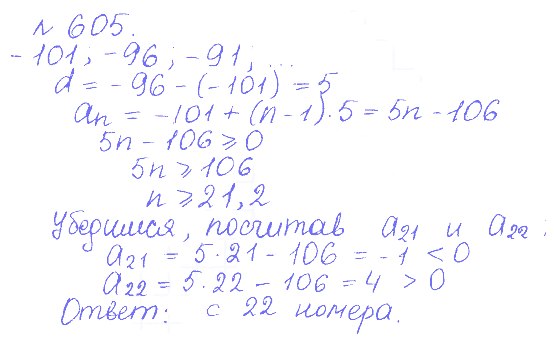 № 605.
-101; -96; -91; ...
d = -96 - (-101) = 5
aₙ = -101 + (n-1)·5 = 5n - 106
5n - 106 ⩾ 0
5n ⩾ 106
n ⩾ 21,2
Убедимся, посчитав a₂₁ и a₂₂:
a₂₁ = 5·21 - 106 = -1 < 0
a₂₂ = 5·22 - 106 = 4 > 0
Ответ: с 22 номера.